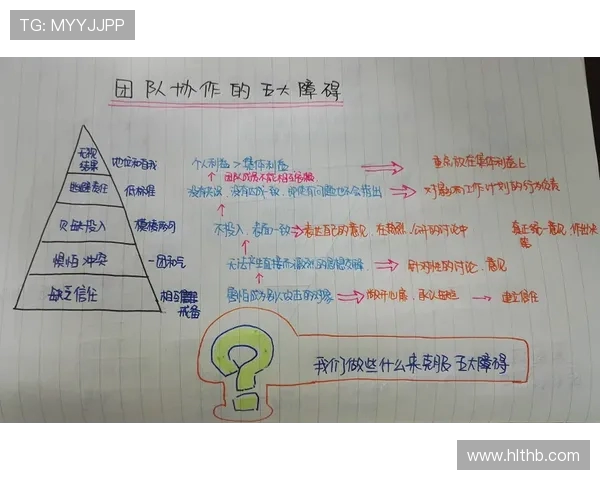 TG: MYYJJPP
团队协作的五大障碍
无视结果 地位和自我 个人利益 > 集体利益 重点放在集体利益上
团队成员不能相互
逃避责任 低标准 没有共识、没有达成一致,即使有问题也不会指出 对影响工作计划的行为负责
欠缺投入 模棱两可 不投入,表面一致 表达自己的意见,在激烈、公开的讨论中 真正统一意见,作出决定
惧怕冲突 一团和气 无法产生直接而激烈的思想交锋 针对性的讨论、意见
缺乏信任 相互戒备 害怕成为别人攻击的对象 敞开心扉,承认 建立信任
我们做些什么来克服五大障碍
www.hlthb.com